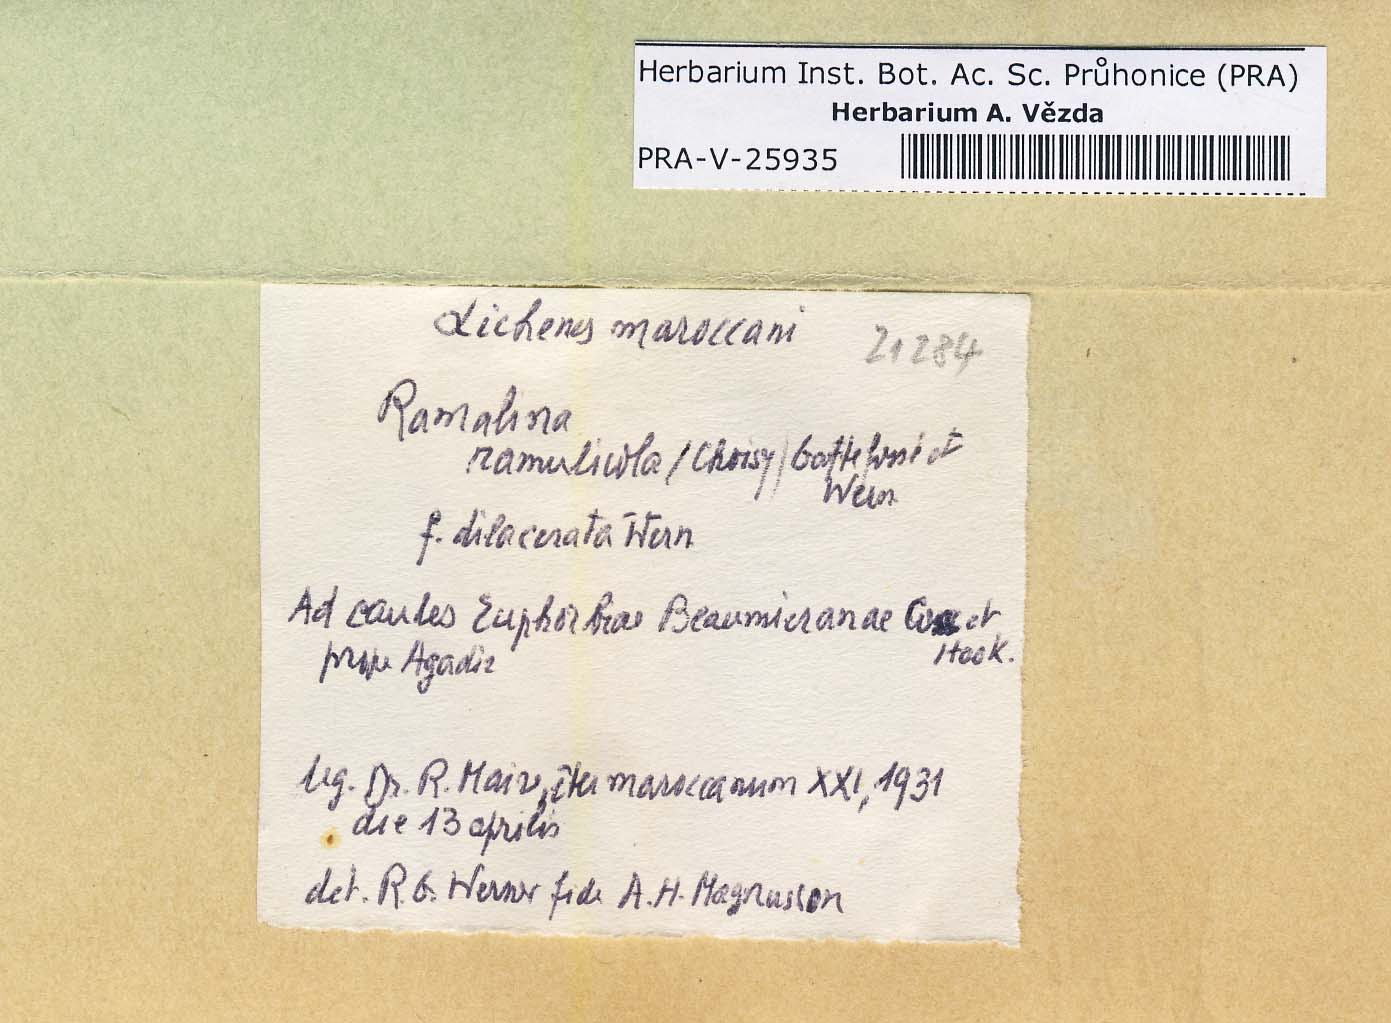 Herbarium Inst. Bot. Ac. Sc. Průhonice (PRA)
Herbarium A. Vězda
PRA-V-25935
Lichenes maroccani
21284
Ramalina
ramulicola /Choisy/ Gattefossé et
Wern
f. dilacerata Wern
Ad caules Euphorbiae Beaumieranae et
Hook.
prope Agadir
leg. Dr. R. Maire, iter maroccanum XXI, 1931
die 13 aprilis
det. R. G. Werner fide A. H. Magnusson